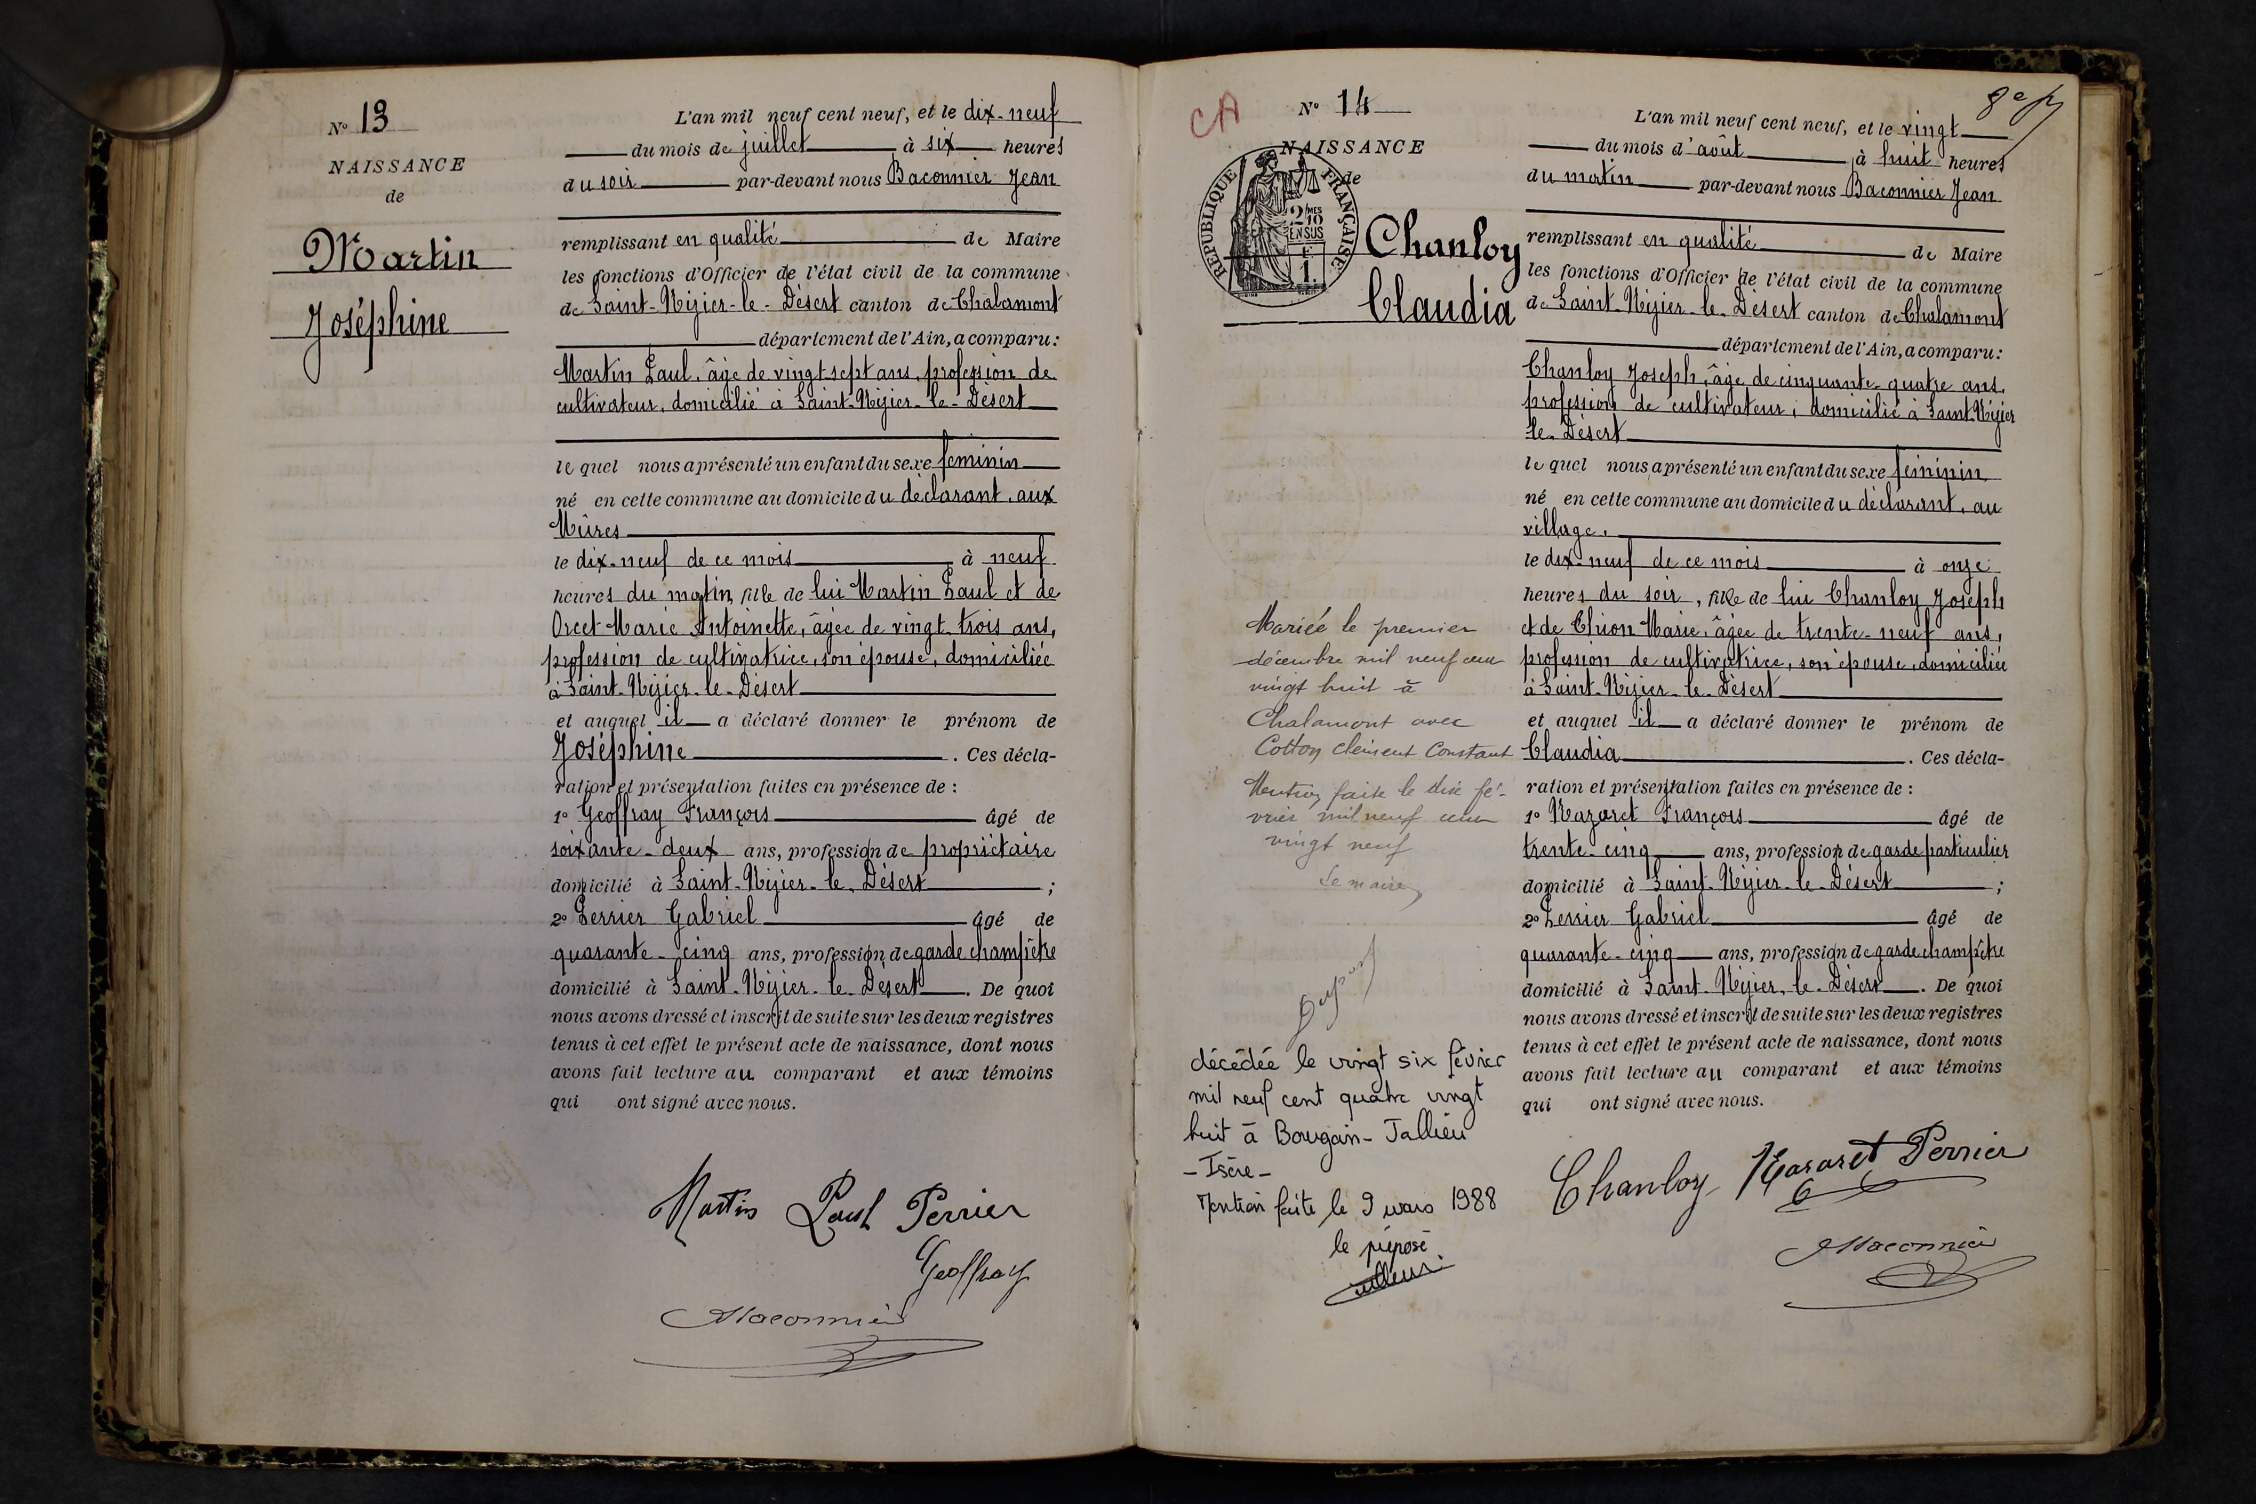 N° 13
NAISSANCE
de
Martin
Joséphine
L'an mil neuf cent neuf, et le dix-neuf
du mois de juillet à six heures
du soir par-devant nous Baconnier Jean
remplissant en qualité de Maire
les fonctions d'Officier de l'état civil de la commune
de Saint-Nizier-le-Désert canton de Chalamont
département de l'Ain, a comparu:
Martin Paul, âgé de vingt sept ans, profession de
cultivateur, domicilié à Saint-Nizier-le-Désert
le quel nous a présenté un enfant du sexe féminin
né en cette commune au domicile du déclarant, aux
Mûres
le dix-neuf de ce mois à neuf
heures du matin, fille de lui Martin Paul et de
Orcet Marie Antoinette, âgée de vingt-trois ans,
profession de cultivatrice, son épouse, domiciliée
à Saint-Nizier-le-Désert
et auquel il a déclaré donner le prénom de
Joséphine. Ces décla-
ration et présentation faites en présence de :
1° Geoffray François âgé de
soixante-deux ans, profession de propriétaire
domicilié à Saint-Nizier-le-Désert ;
2° Perrier Gabriel âgé de
quarante-cinq ans, profession de garde champêtre
domicilié à Saint-Nizier-le-Désert. De quoi
nous avons dressé et inscrit de suite sur les deux registres
tenus à cet effet le présent acte de naissance, dont nous
avons fait lecture au comparant et aux témoins
qui ont signé avec nous.
Martin Paul Perrier
Geoffray
Baconnier
CA
N° 14
8e
NAISSANCE
de
REPUBLIQUE FRANÇAISE
2/10 MES
EN SUS
F
1.
Chanloy
Claudia
L'an mil neuf cent neuf, et le vingt
du mois d'août à huit heures
du matin par-devant nous Baconnier Jean
remplissant en qualité de Maire
les fonctions d'Officier de l'état civil de la commune
de Saint-Nizier-le-Désert canton de Chalamont
département de l'Ain, a comparu:
Chanloy Joseph, âgé de cinquante-quatre ans,
profession de cultivateur, domicilié à Saint-Nizier
le-Désert
le quel nous a présenté un enfant du sexe féininin
né en cette commune au domicile du déclarant, au
village.
le dix-neuf de ce mois à onze
heures du soir, fille de lui Chanloy Joseph
et de Chion Marie, âgée de trente-neuf ans,
profession de cultivatrice, son épouse, domiciliée
à Saint-Nizier-le-Désert
et auquel il a déclaré donner le prénom de
Claudia. Ces décla-
ration et présentation faites en présence de :
1° Nazaret François âgé de
trente-cinq ans, profession de garde particulier
domicilié à Saint-Nizier-le-Désert ;
2° Perrier Gabriel âgé de
quarante-cinq ans, profession de garde champêtre
domicilié à Saint-Nizier-le-Désert. De quoi
nous avons dressé et inscrit de suite sur les deux registres
tenus à cet effet le présent acte de naissance, dont nous
avons fait lecture au comparant et aux témoins
qui ont signé avec nous.
Chanloy Nazaret Perrier
Baconnier
Mariée le premier
décembre mil neuf cent
vingt huit à
Chalamont avec
Cotton Clément Constant
Mention faite le dix fé-
vrier mil neuf cent
vingt neuf
Le maire
décédée le vingt six février
mil neuf cent quatre vingt
huit à Bourgoin-Jallieu
-Isère-
Mention faite le 9 mars 1988
le préposé